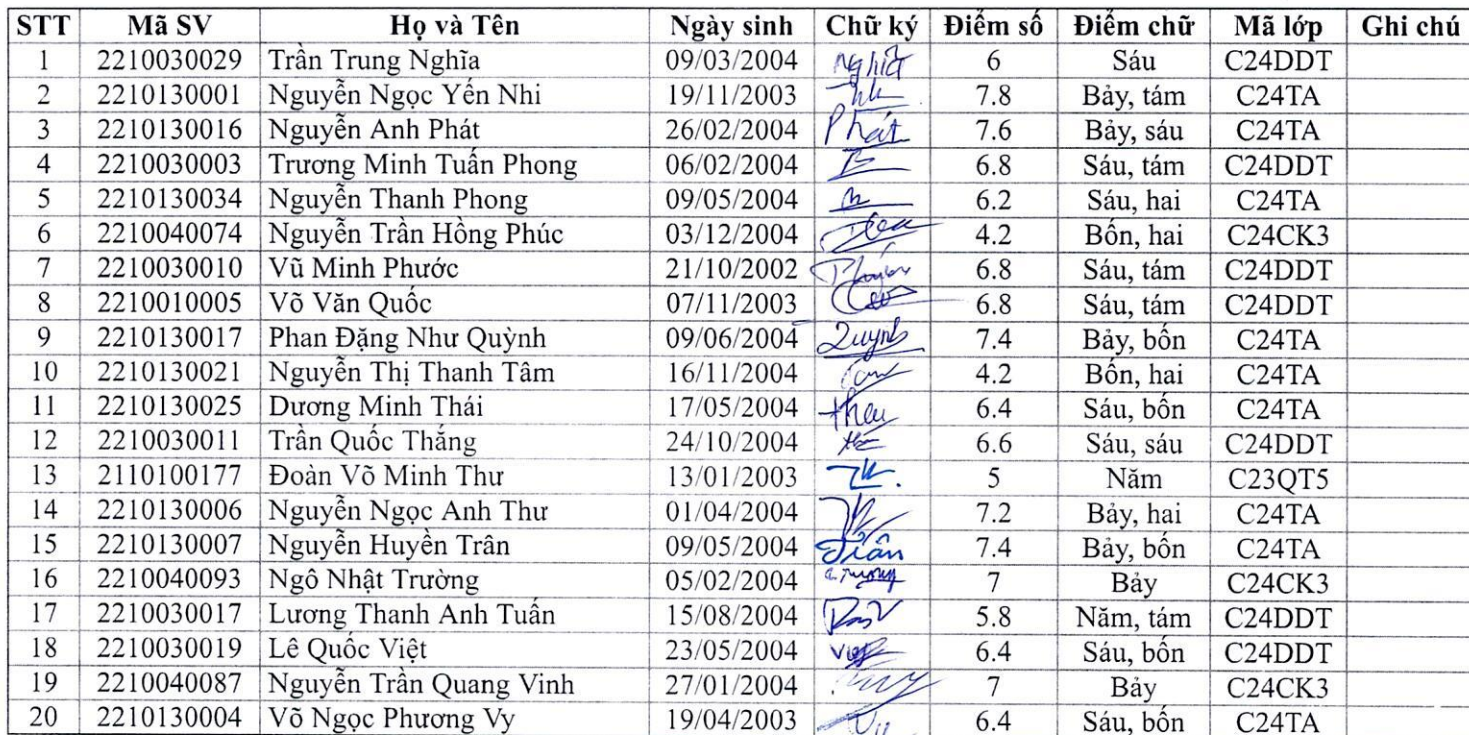 STT Mã SV Họ và Tên Ngày sinh Chữ ký Điểm số Điểm chữ Mã lớp Ghi chú
1 2210030029 Trần Trung Nghĩa 09/03/2004 Nghĩa 6 Sáu C24DDT
2 2210130001 Nguyễn Ngọc Yến Nhi 19/11/2003 7.8 Bảy, tám C24TA
3 2210130016 Nguyễn Anh Phát 26/02/2004 Phát 7.6 Bảy, sáu C24TA
4 2210030003 Trương Minh Tuấn Phong 06/02/2004 6.8 Sáu, tám C24DDT
5 2210130034 Nguyễn Thanh Phong 09/05/2004 6.2 Sáu, hai C24TA
6 2210040074 Nguyễn Trần Hồng Phúc 03/12/2004 4.2 Bốn, hai C24CK3
7 2210030010 Vũ Minh Phước 21/10/2002 6.8 Sáu, tám C24DDT
8 2210010005 Võ Văn Quốc 07/11/2003 6.8 Sáu, tám C24DDT
9 2210130017 Phan Đặng Như Quỳnh 09/06/2004 Quynh 7.4 Bảy, bốn C24TA
10 2210130021 Nguyễn Thị Thanh Tâm 16/11/2004 4.2 Bốn, hai C24TA
11 2210130025 Dương Minh Thái 17/05/2004 6.4 Sáu, bốn C24TA
12 2210030011 Trần Quốc Thắng 24/10/2004 6.6 Sáu, sáu C24DDT
13 2110100177 Đoàn Võ Minh Thư 13/01/2003 5 Năm C23QT5
14 2210130006 Nguyễn Ngọc Anh Thư 01/04/2004 7.2 Bảy, hai C24TA
15 2210130007 Nguyễn Huyền Trân 09/05/2004 Trân 7.4 Bảy, bốn C24TA
16 2210040093 Ngô Nhật Trường 05/02/2004 7 Bảy C24CK3
17 2210030017 Lương Thanh Anh Tuấn 15/08/2004 5.8 Năm, tám C24DDT
18 2210030019 Lê Quốc Việt 23/05/2004 6.4 Sáu, bốn C24DDT
19 2210040087 Nguyễn Trần Quang Vinh 27/01/2004 7 Bảy C24CK3
20 2210130004 Võ Ngọc Phương Vy 19/04/2003 6.4 Sáu, bốn C24TA